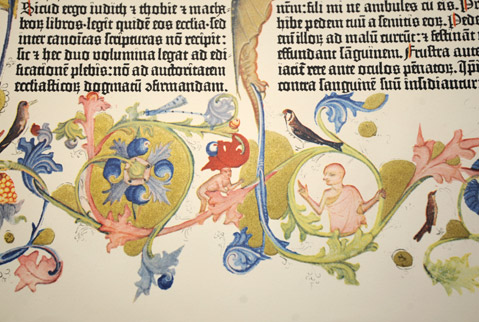 Sicud ergo iudith ⁊ thobie ⁊ macha
beoꝝ libros legit quidē eos ecclia sed
inter canonicas scripturas nō recipit:
sic ⁊ hec duo volumina legat ad edi
ficationem plebis: nō ad auctoritatem
ecclesiasticoꝝ dogmatū ꝯfirmandam.
fili mi ne ambules cū eis.
hibe pedem tuū a semitis eoꝝ. Pedes
illoꝝ ad malū currūt: ⁊ festinant
effundant sanguinem. Frustra aute
iacit̄ rete ante oculos pēnatoꝝ. Ipi
contra sanguinē suū insidiantur